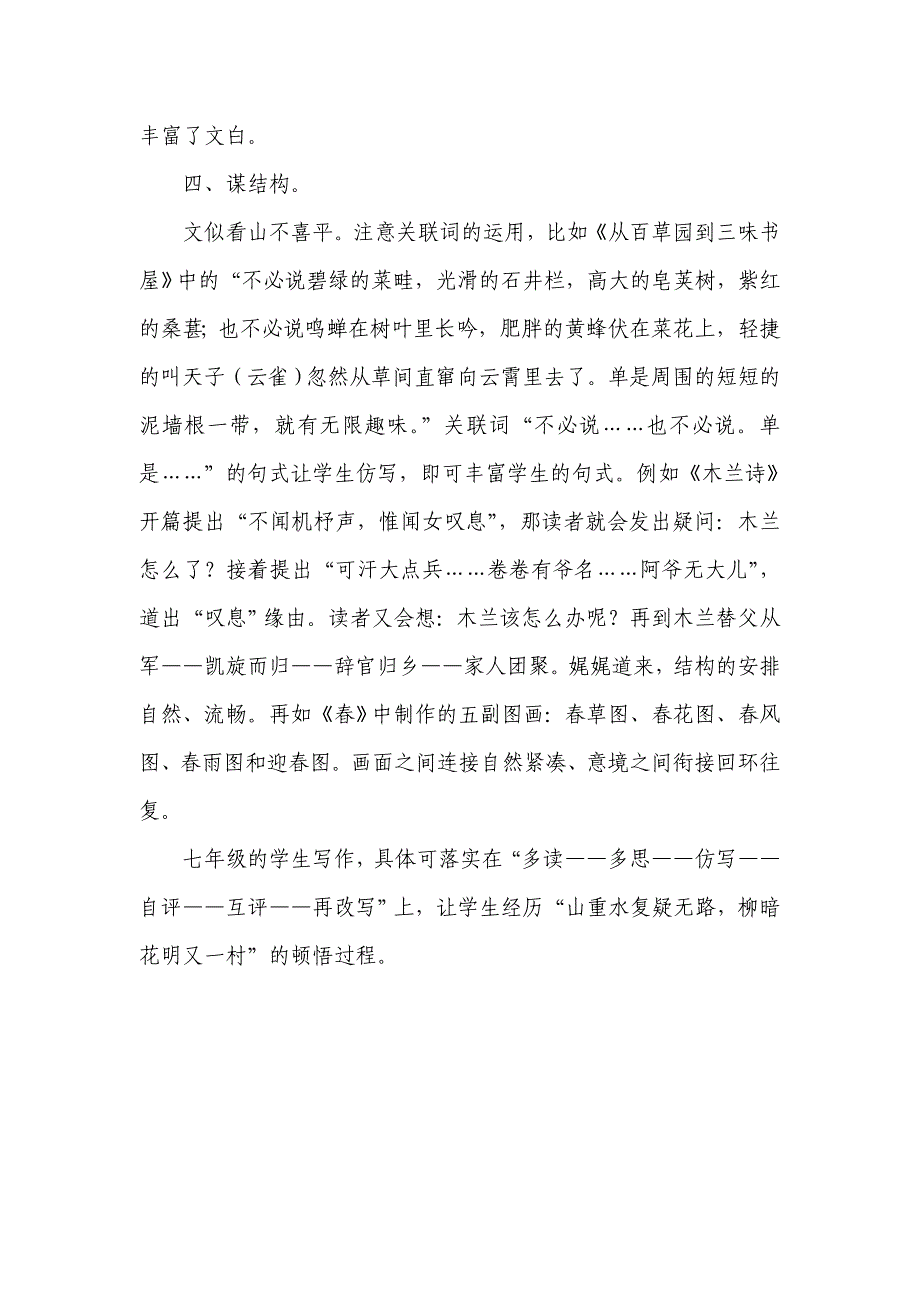 丰富了文白。
四、谋结构。
文似看山不喜平。注意关联词的运用，比如《从百草园到三味书
屋》中的“不必说碧绿的菜畦，光滑的石井栏，高大的皂荚树，紫红
的桑葚；也不必说鸣蝉在树叶里长吟，肥胖的黄蜂伏在菜花上，轻捷
的叫天子（云雀）忽然从草间直窜向云霄里去了。单是周围的短短的
泥墙根一带，就有无限趣味。”关联词“不必说……也不必说。单
是……”的句式让学生仿写，即可丰富学生的句式。例如《木兰诗》
开篇提出“不闻机杼声，惟闻女叹息”，那读者就会发出疑问：木兰
怎么了？接着提出“可汗大点兵……卷卷有爷名……阿爷无大儿”，
道出“叹息”缘由。读者又会想：木兰该怎么办呢？再到木兰替父从
军——凯旋而归——辞官归乡——家人团聚。娓娓道来，结构的安排
自然、流畅。再如《春》中制作的五副图画：春草图、春花图、春风
图、春雨图和迎春图。画面之间连接自然紧凑、意境之间衔接回环往
复。
七年级的学生写作，具体可落实在“多读——多思——仿写——
自评——互评——再改写”上，让学生经历“山重水复疑无路，柳暗
花明又一村”的顿悟过程。